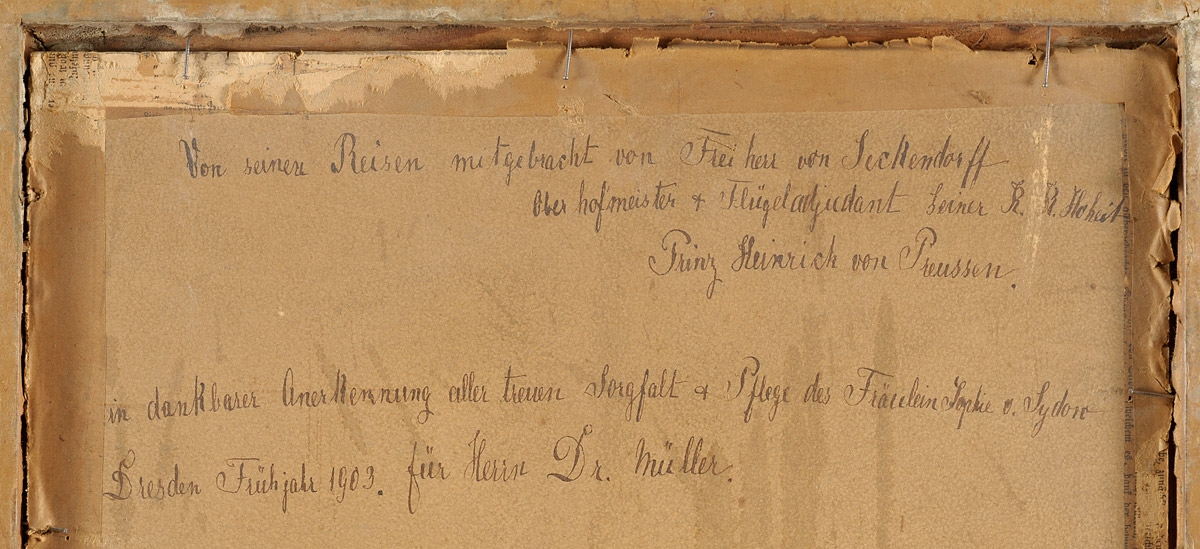 Von seinen Reisen mitgebracht von Freiherr von Seckendorff
Oberhofmeister + Flügeladjudant Seiner K. K. Hoheit
Prinz Heinrich von Preussen.
in dankbarer Anerkennung aller treuen Sorgfalt + Pflege des Fräulein Sophie v. Sydow
Dresden Frühjahr 1903. für Herrn Dr. Müller.